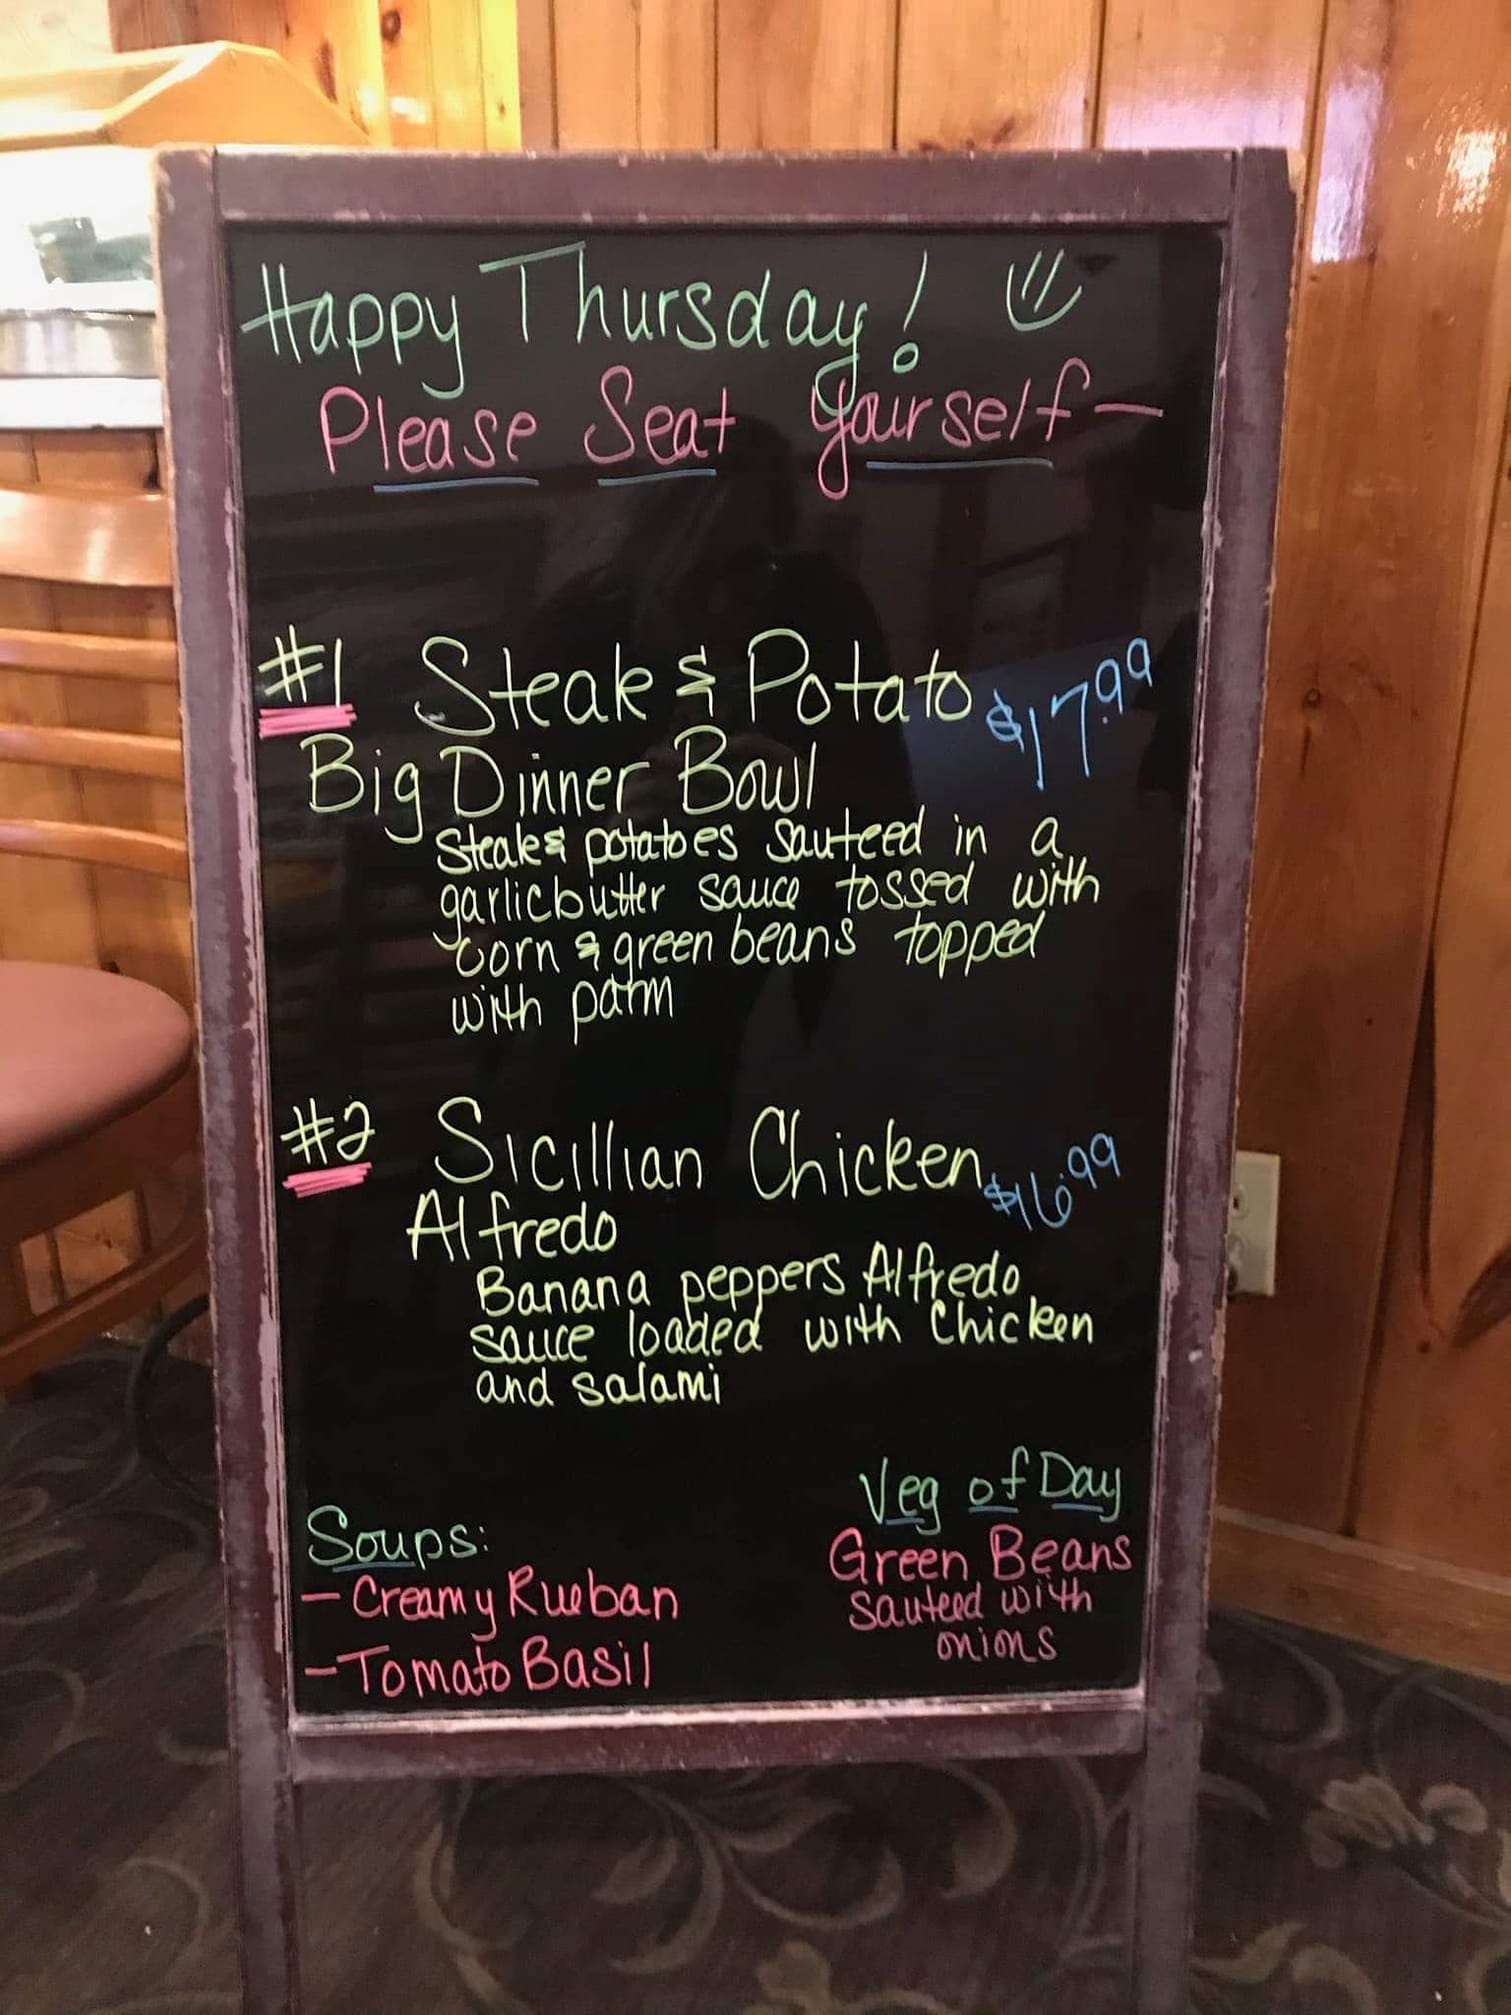 Happy Thursday!
Please Seat Yourself-
#1 Steak & Potato $17.99
Big Dinner Bowl
Steak & potatoes sauteed in a
garlic butter sauce tossed with
corn & green beans topped
with parm
#2 Sicillian Chicken $16.99
Alfredo
Banana peppers Alfredo
sauce loaded with Chicken
and salami
Veg of Day
Green Beans
sauteed with
onions
Soups:
- Creamy Rueban
- Tomato Basil